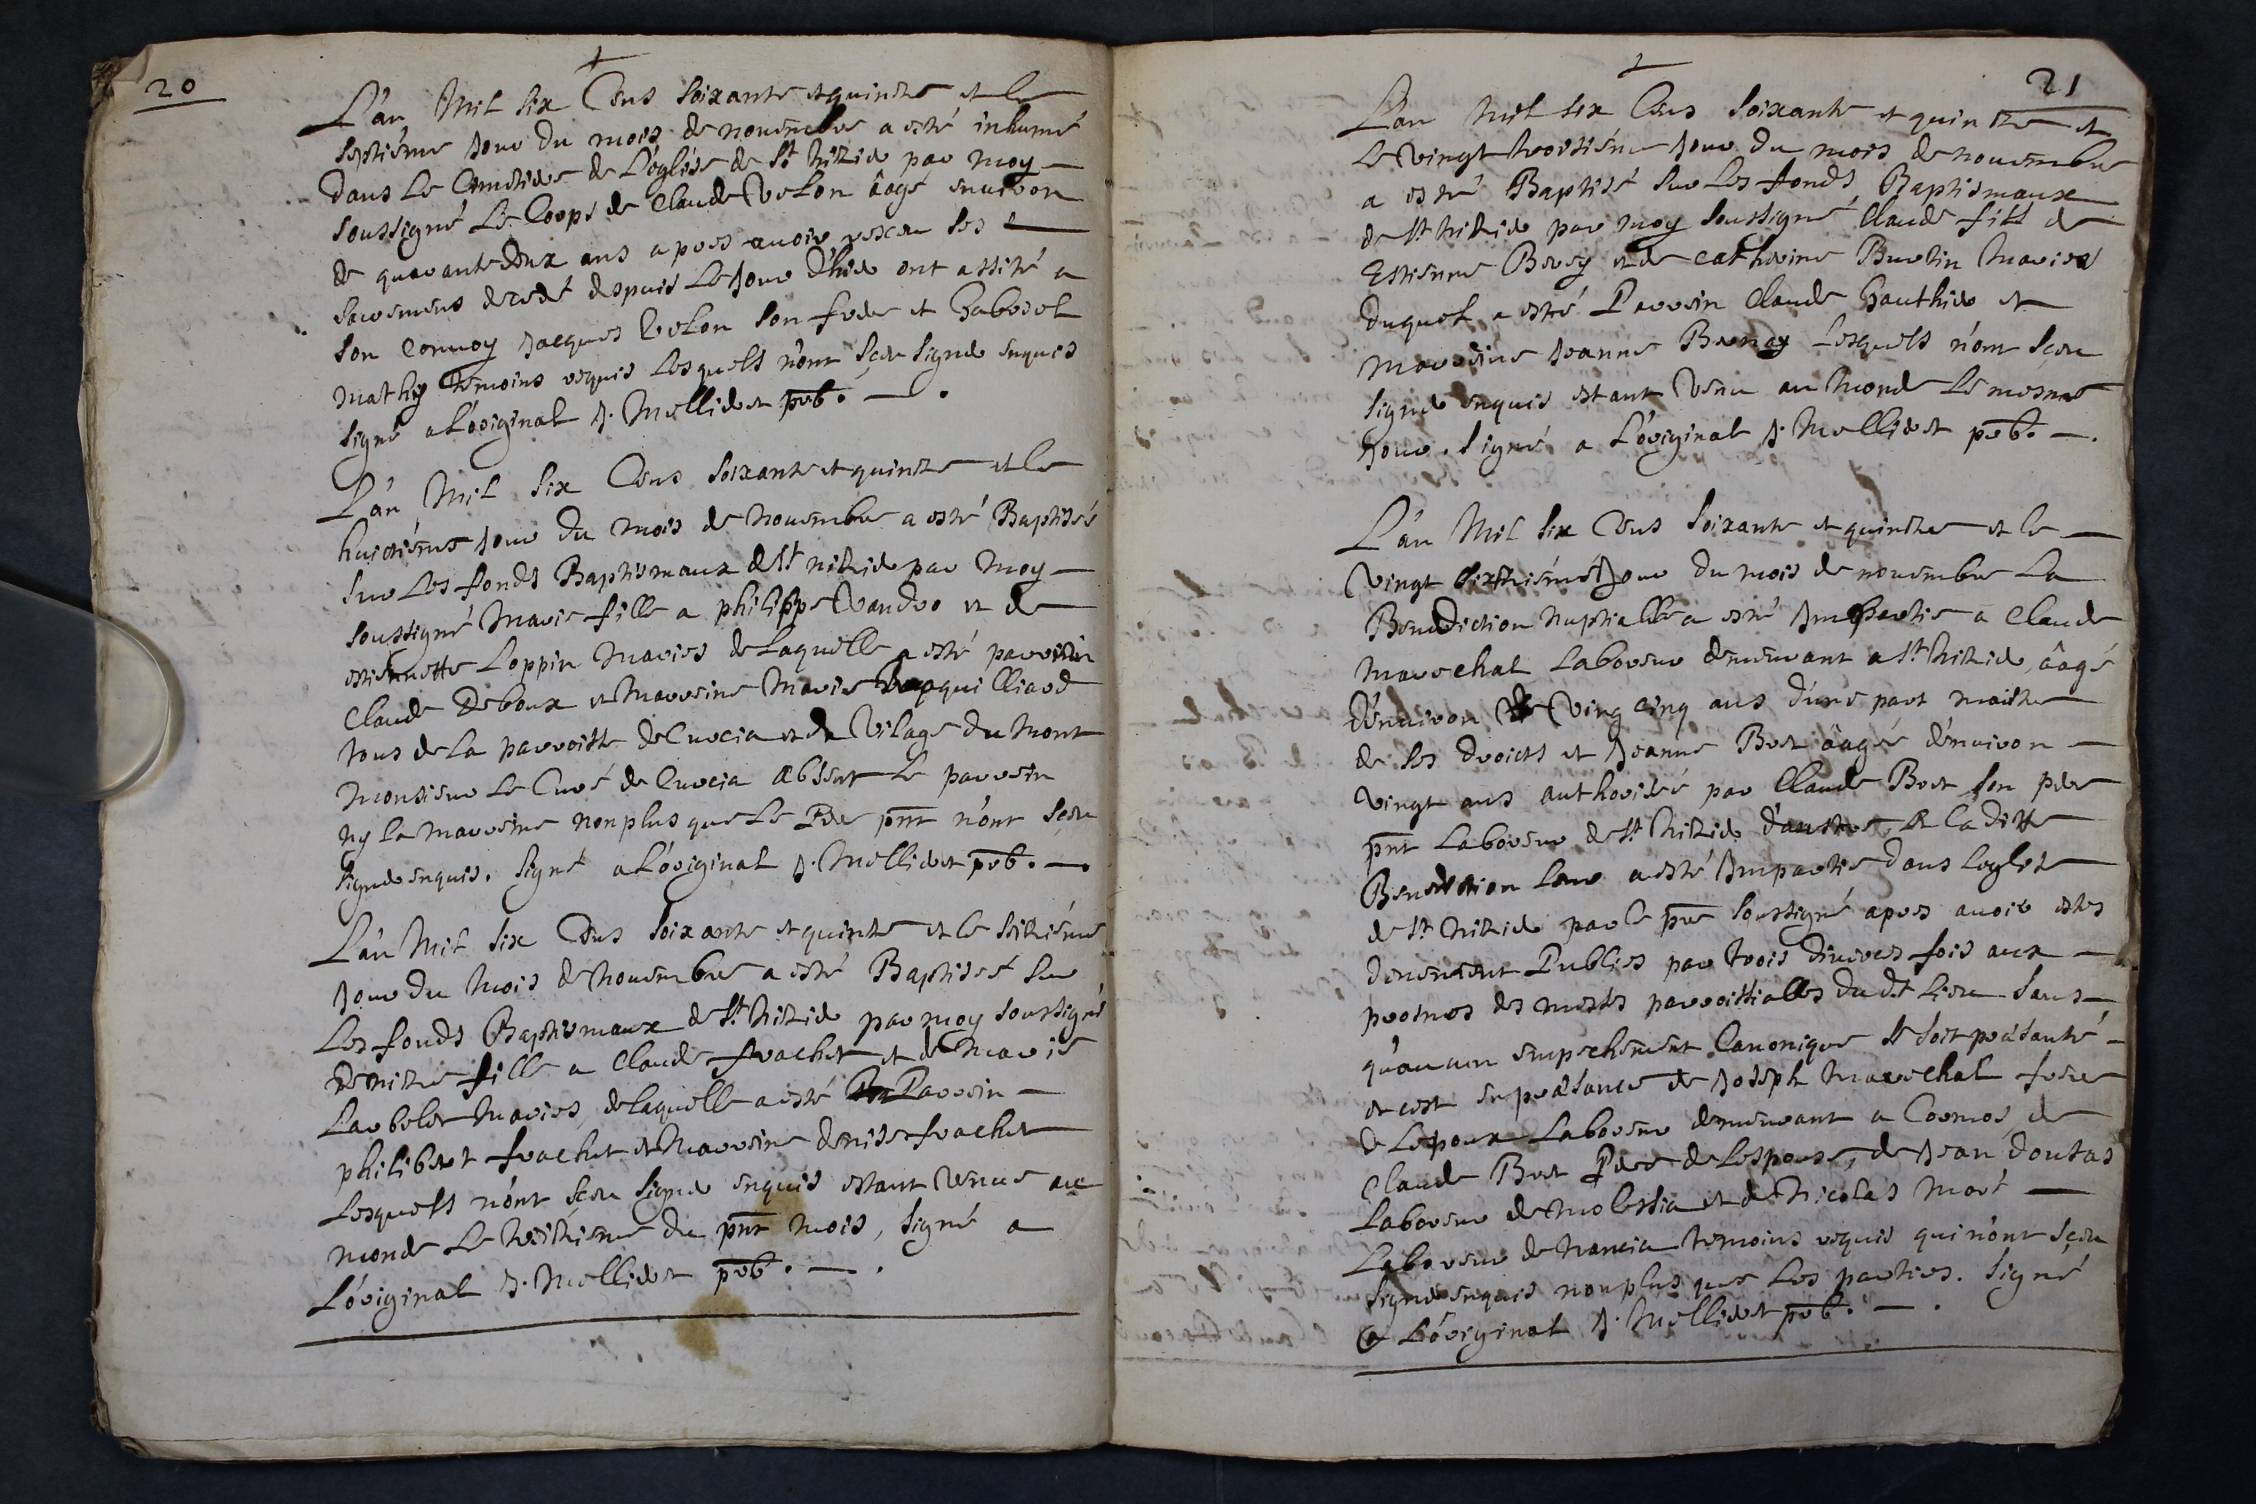 20
L'an Mil six Cens soixante et quinze et le
septiéme Jour du mois de nouembre a esté inhumé
dans le Cimetiere de L'églése de St Nizier par moy
soussigné Le Corps de Claude Velon âagé enuiron
de quarante deux ans apres auoir resceu ses
sacremens decedé depuis Le Jour d'hier ont assité a
son conuoy Jacques Velon son frere et Gabriel
mathy temoins requis Lesquels n'ont sçeu signer enquis
signé a Loriginal J. Mellieret prb.
L'an Mil six Cens soixante et quinze et le
huictiéme Jour du mois de Nouembre a esté Baptisée
sur Les fonds Baptismaux de St nizier par moy
soussigné Marie fille a philippe Vandro et de
estiennette Loppin Maries de Laquelle a esté parrein
Claude Deboux et Marreine Marie
tous de La parroisse de Cuocia et du Vilage du Mont
Monsieur Le Curé de Cuocia absent Le parrein
ny La marreine non plus que Le Pere pnt n'ont sçeu
signer enquis. Signé a L'original J. Mellieret prb.
L'an Mil six Cens soixante et quinze et le seiziéme
Jour du Mois de Nouembre a esté Baptisée sur
Les fonds Baptismaux de St Nizier par moy soussigné
Denize fille a Claude frachet et de Marie
Larbelet Maries, de laquelle a esté Parrein
philibert frachet et Marreine denise frachet
Lesquels n'ont sçeu signer enquis estant Venue au
monde Le treiziéme du pnt mois, signé a
L'original J. Mellieret prb.
21
L'an Mil six Cens soixante et quinze et
Le vingt troisiéme Jour du mois de nouembre
a esté Baptisé sur Les fonds Baptismaux
de St Nizier par moy soussigné Claude fils de
Estienne Berey et de Catherine Burtin Maries
duquel a esté Parrein Claude Gauthier et
marreine Jeanne Lesquels n'ont sçeu
signer enquis estant Venu au Monde Le mesme
Jour. Signé a L'original J. Mellieret prb.
L'an Mil six Cens soixante et quinze et le
Vingt sixthiéme Jour du mois de nouembre La
Benediction Nuptialle a esté Jmpartie a Claude
Mareschal Laboreur demeurant a St Nizier, âagé
d'enuiron Ving cinq ans d'une part maistre
de ses droicts et Jeanne Bret âagée d'enuiron
vingt ans authorisée par Claude Bret son pere
pnt Laboreur de St Nizier d'autre, La ditte
Benediction Leur a esté Jmpartie dans Leglise
de St Nizier par le pre soussigné apres auoir estes
deuement Publies par trois diuerses fois aux
prosnes des messes parroissialles du dt Lieu sans
qu'aucun empeschement Canonique se soit présanté
et cest en présance de Joseph Mareschal frere
de Lépoux Laboreur demeurant a Cormos, de
Claude Bret Pere de Lespouse, de Jean doutas
Laboreur de Molestia et de Nicolas Moré
Laboreur de Nancia temoins requis qui n'ont sçeu
signer enquis non plus que Les parties. Signé
a L'original J. Mellieret prb.